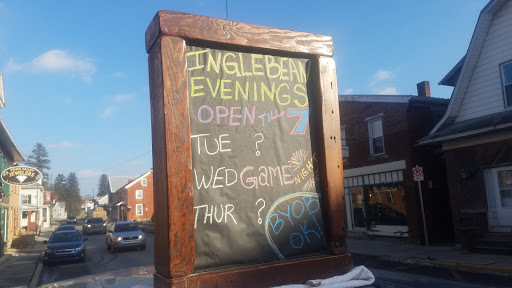 INGLEBEAN
EVENINGS
OPEN TILL 7
TUE ?
WED GAME NIGHT
THUR ?
BYOB
OK!